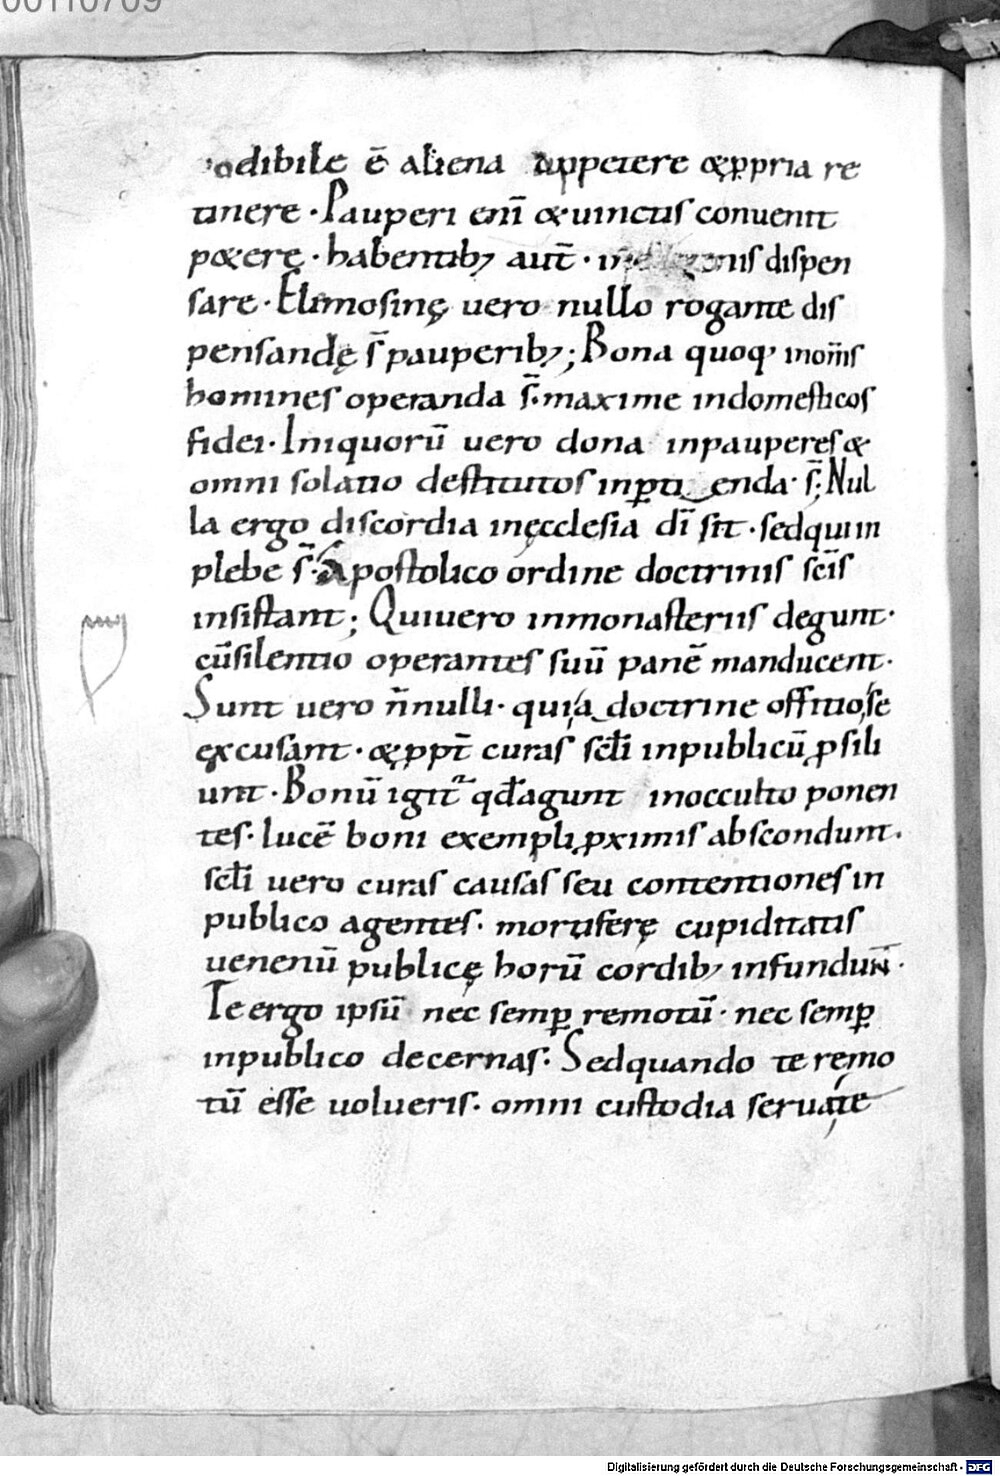 00110709
odibile ē aliena appetere &ꝓpria re
tinere · Pauperi eni᷑ &uinctis conuenit
p&ere · habentibꝫ aut̄ · dispen
sare · Elimosinę uero nullo rogante dis
pensandę s̄ pauperibꝫ; Bona quoqꝫ inom̄s
homines operanda s̄· maxime indomesticos
fidei · Iniquorū uero dona inpauperes &
omni solatio destitutos inꝑtienda · s̄; Nul
la ergo discordia inęcclesia dī sit · sedqui in
plebe s̄· Apostolico ordine doctrinis sc̄is
insistant; Quiuero inmonasteriis degunt·
cūsilentio operantes suū panē manducent·
Sunt uero n̄nulli · quia doctrine offitio se
excusant · &ꝓpt̄ curas sc̄li inpublicū ꝓsili
unt · Bonū igit᷑ qd̄agunt inocculto ponen
tes · lucē boni exempli ꝓximis abscondunt.
sc̄li uero curas causas seu contentiones in
publico agentes · mortiferę cupiditatis
uenenū publicę horū cordibꝫ infundun̄t ·
Te ergo ipsū nec semꝑ remotū · nec semꝑ
inpublico decernas · Sedquando te remo
tū esse uolueris · omni custodia seruate
Digitalisierung gefördert durch die Deutsche Forschungsgemeinschaft - DFG